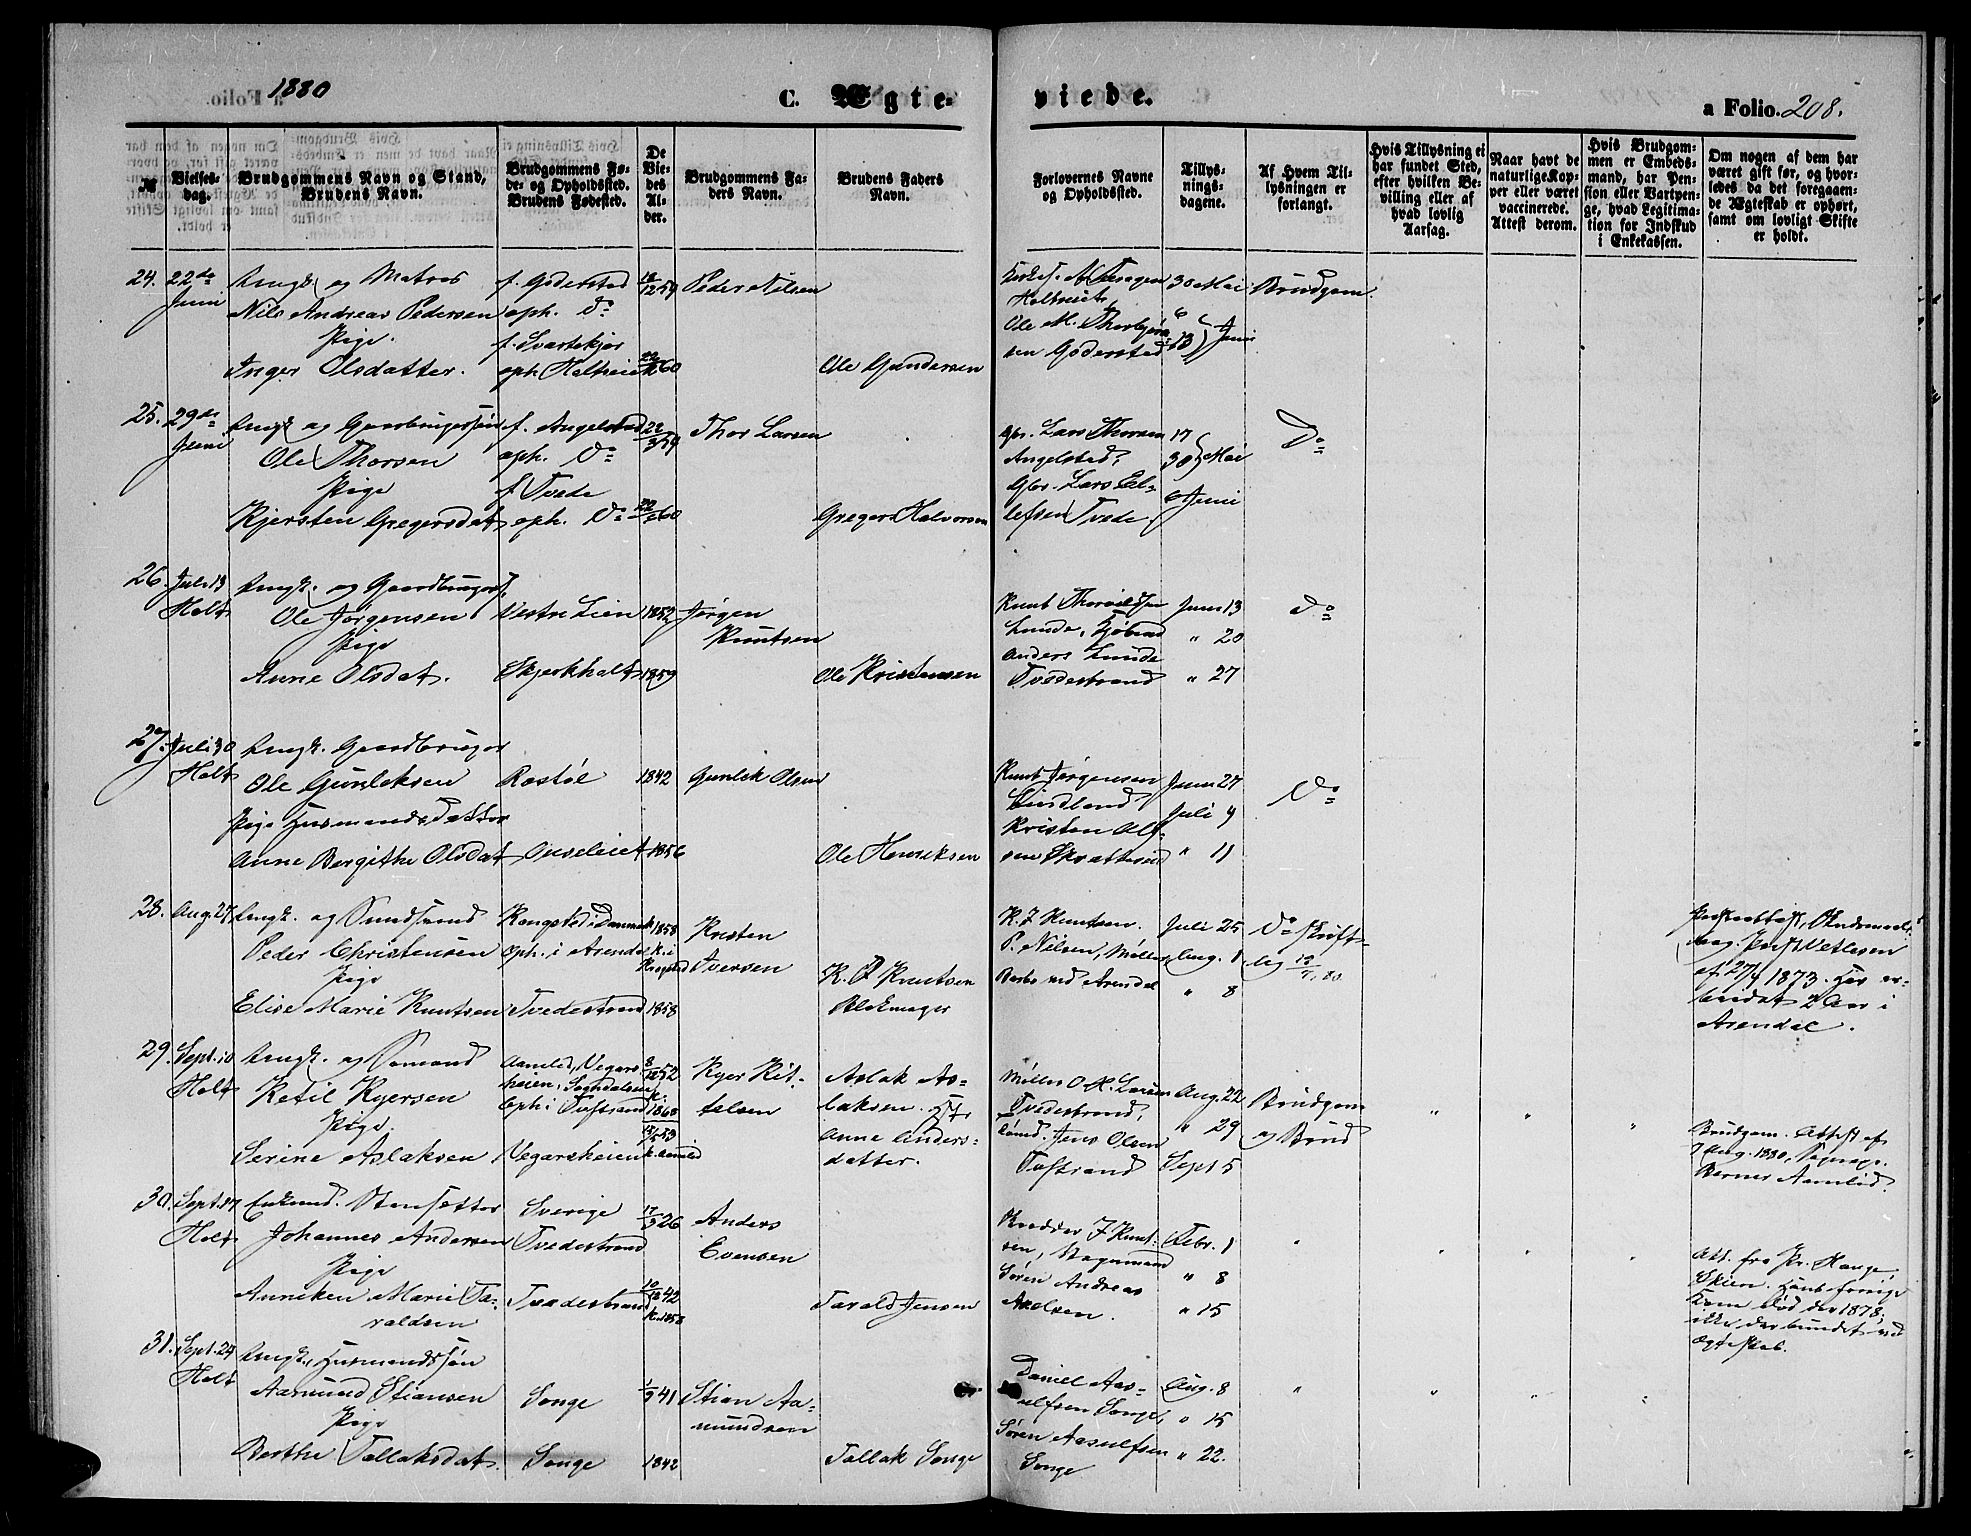 1880
C. Ægteviede.
a Folio. 208.
№
Vielsesdag.
Brudgommens Navn og Stand, Brudens Navn.
Brudgommens Føde- og Opholdssted. Brudens Fødested.
De Viedes Alder.
Brudgommens Faders Navn.
Brudens Faders Navn.
Forlovernes Navne og Opholdssted.
Tillysningsdagene.
Af Hvem Tillysningen er forlangt.
Hvis Tillysning ei har fundet Sted, efter hvilken Bevilling eller af hvad lovlig Aarsag.
Naar havt de naturlige Kopper eller været vaccinerede. Attest derom.
Hvis Brudgommen er Embedsmand, har Pension eller Vartpenge, hvad Legitimation for Indskud i Enkekassen.
Om nogen af dem har været gift før, og hvorledes da det foregaaende Ægteskab er ophørt, samt om lovligt Skifte er holdt.
24. 22de Juni
Ungk. og Matros
Nils Andreas Pedersen
Pige.
Inger Olsdatter.
f. Goderstad
oph. Do
f. Svartekjær
oph. Holteeie
59
60
Peder Nilsen
Ole Gundersen
Holteeie
Ole M. Thorbjørn
sen Goderstad
30 Mai
6
13 Juni
Brudgom.
25. 29de Juni
Ungk og Gaardbrugersøn
Ole Thorsen
Pige
Kjersten Gregersdat
f. Angelstad
oph. Do
f. Tvede
oph. Do
22/3 59
60
Thor Larsen
Gregers Halvorsen
Gbr. Lars Thorsen
Angelsted,
Gbr. Lars Elefsen
Tvede.
17
30 Mai
6 Juni
Do
26. Juli 13
Holt
Ungk. og Gaardbruger
Ole Jørgensen
Pige
Anne Olsdat.
Vestre Lien
Skjerkholt
1852
1859
Jørgen
Knutsen
Ole Kristensen
Knut
Lunde,
Anders Lunde
Tvedestrand
Juni 13
" 20
" 27
Do
27. Juli 30
Holt
Ungk. Gaardbruger
Ole Gunleksen
Pige Husmandsdatter
Anne Bergithe Olsdat
Rostøl
1842
1856
Gunlek Olsen
Ole Henriksen
Knut Jørgensen
Lindland
Kristen Olsen
Juni 27
Juli 4
" 11
Do
28. Aug 27,
Ungk. og
Peder Christensen
Pige
Elise Marie Knutsen
Kongsted i Danmark
oph. i Arendal
Tvedestrand
1858
1858
Kristen
Iversen
K. J. Knutsen
Blokmager
K. J. Knutsen.
P. Nilsen, Møller
Barbo ved Arendal
Juli 25
Aug. 1
" 8
Do Skriftlig
af 27/4 1873. Har
2 Aar i
Arendal.
29. Sept. 10
Holt
Ungk. og Sømand
Ketil Kyersen
Pige.
Serine Aslaksen
Aamlid, Vegarsheien,
Oph: i
Vegarsheien
52
1868
53
k. Aamlid
Kyer Kitelsen
Aslak Aslaksen.
Anne Andersdatter.
Møller O. M. Larsen
Tvedestrand,
Jens Olsen
Aug. 22
" 29
Sept 5
Brudgom
og Brud
" " "
Brudgom. Attest af
Aug. 1880,
Berner Aamlid.
30. Sept. 17
Holt
Enkemd. Stensætter
Johannes Andersen
Pige
Anneken Marie Taraldsen
Sverige
Tvedestrand
Tvedestrand
26
42
k. 1858
Anders
Evensen
Tarald Jensen
J Knutsen,
Søren Andreas
Axelsen.
Febr. 1
" 8
" 15
" " " "
Att. fra Pr. Hauge,
Skien. Hans forrige
Kone død der 1878,
ikke der bundet ved
Ægteskab.
31. Sept. 24
Holt
Ungk., Husmandssøn
Aamund Stiansen
Pige
Berthe Tallaksdat.
Songe
Songe
41
1842
Stian Aamundsen
Tallak Songe
Daniel Aasulfsen
Songe,
Søren Aasulfsen
Songe
Aug. 8
" 15
" 22.
" " "